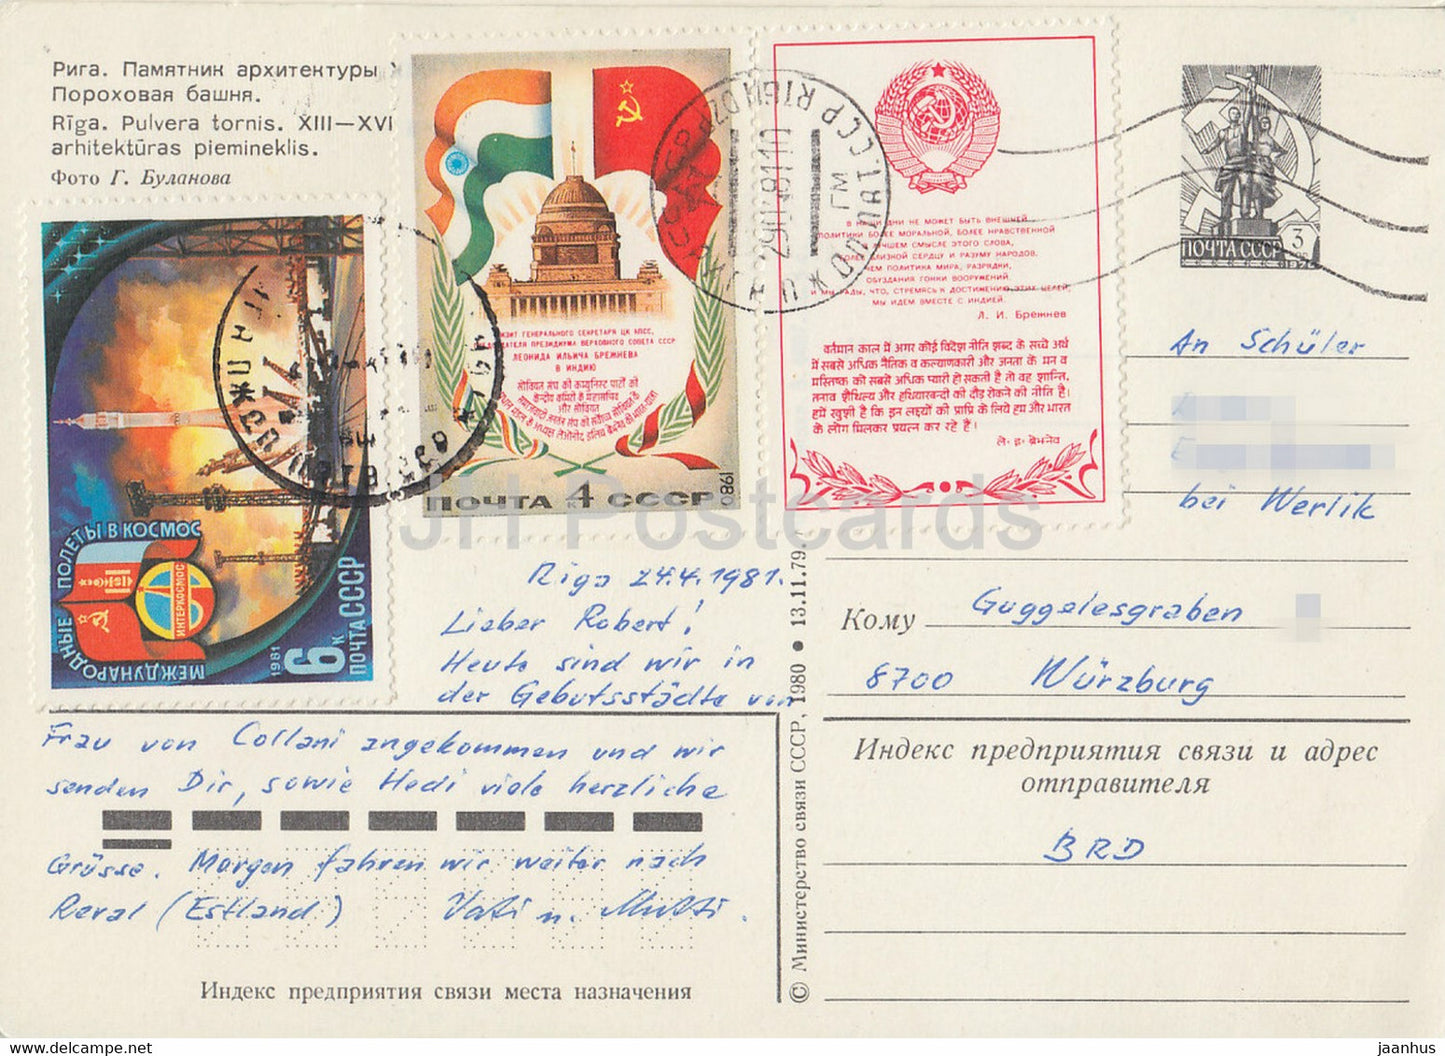 Рига. Памятник архитектуры X
Пороховая башня.
Rīga. Pulvera tornis. XIII—XVI
arhitektūras piemineklis.
Фото Г. Буланова
МЕЖДУНАРОДНЫЕ ПОЛЕТЫ В КОСМОС
ИНТЕРКОСМОС
1981
6к ПОЧТА СССР
ВИЗИТ ГЕНЕРАЛЬНОГО СЕКРЕТАРЯ ЦК КПСС,
ПРЕДСЕДАТЕЛЯ ПРЕЗИДИУМА ВЕРХОВНОГО СОВЕТА СССР
ЛЕОНИДА ИЛЬИЧА БРЕЖНЕВА
В ИНДИЮ
सोवियत संघ की कम्युनिस्ट पार्टी की
केन्द्रीय कमिटी के महासचिव
और सोवियत
ПОЧТА 4к СССР
1980
В НАШИ ДНИ НЕ МОЖЕТ БЫТЬ ВНЕШНЕЙ
ПОЛИТИКИ БОЛЕЕ МОРАЛЬНОЙ, БОЛЕЕ НРАВСТВЕННОЙ
В ЛУЧШЕМ СМЫСЛЕ ЭТОГО СЛОВА,
БОЛЕЕ БЛИЗКОЙ СЕРДЦУ И РАЗУМУ НАРОДОВ,
ЧЕМ ПОЛИТИКА МИРА, РАЗРЯДКИ,
ОБУЗДАНИЯ ГОНКИ ВООРУЖЕНИЙ.
И МЫ РАДЫ, ЧТО, СТРЕМЯСЬ К ДОСТИЖЕНИЮ ЭТИХ ЦЕЛЕЙ,
МЫ ИДЕМ ВМЕСТЕ С ИНДИЕЙ.
Л. И. Брежнев
वर्तमान काल में अगर कोई विदेश नीति शब्द के सच्चे अर्थ
में सबसे अधिक नैतिक व कल्याणकारी और जनता के मन व
मस्तिष्क को सबसे अधिक प्यारी हो सकती है तो वह शान्ति,
तनाव शैथिल्य और हथियारबन्दी की दौड़ रोकने की नीति है।
हमें खुशी है कि इन लक्ष्यों की प्राप्ति के लिये हम और भारत
के लोग मिलकर प्रयत्न कर रहे हैं।
ले॰ इ॰ ब्रेझनेव
ПОЧТА СССР 3к
1976
290481 10
An Schüler
bei Werlik
Кому Guggelesgraben
8700 Würzburg
Индекс предприятия связи и адрес
отправителя
BRD
Riga 24.4.1981.
Lieber Robert!
Heute sind wir in
der Gebutsstädte von
Frau von Collani angekommen und wir
senden Dir, sowie Hedi viele herzliche
Grüsse. Morgen fahren wir weiter nach
Reval (Estland) Vati u. Mutti.
Индекс предприятия связи места назначения
© Министерство связи СССР, 1980 • 13.11.79.
JH Postcards
www.hippostcard.com
jaanhus